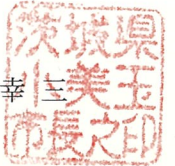 茨城県
小美玉
市長之印
幸三